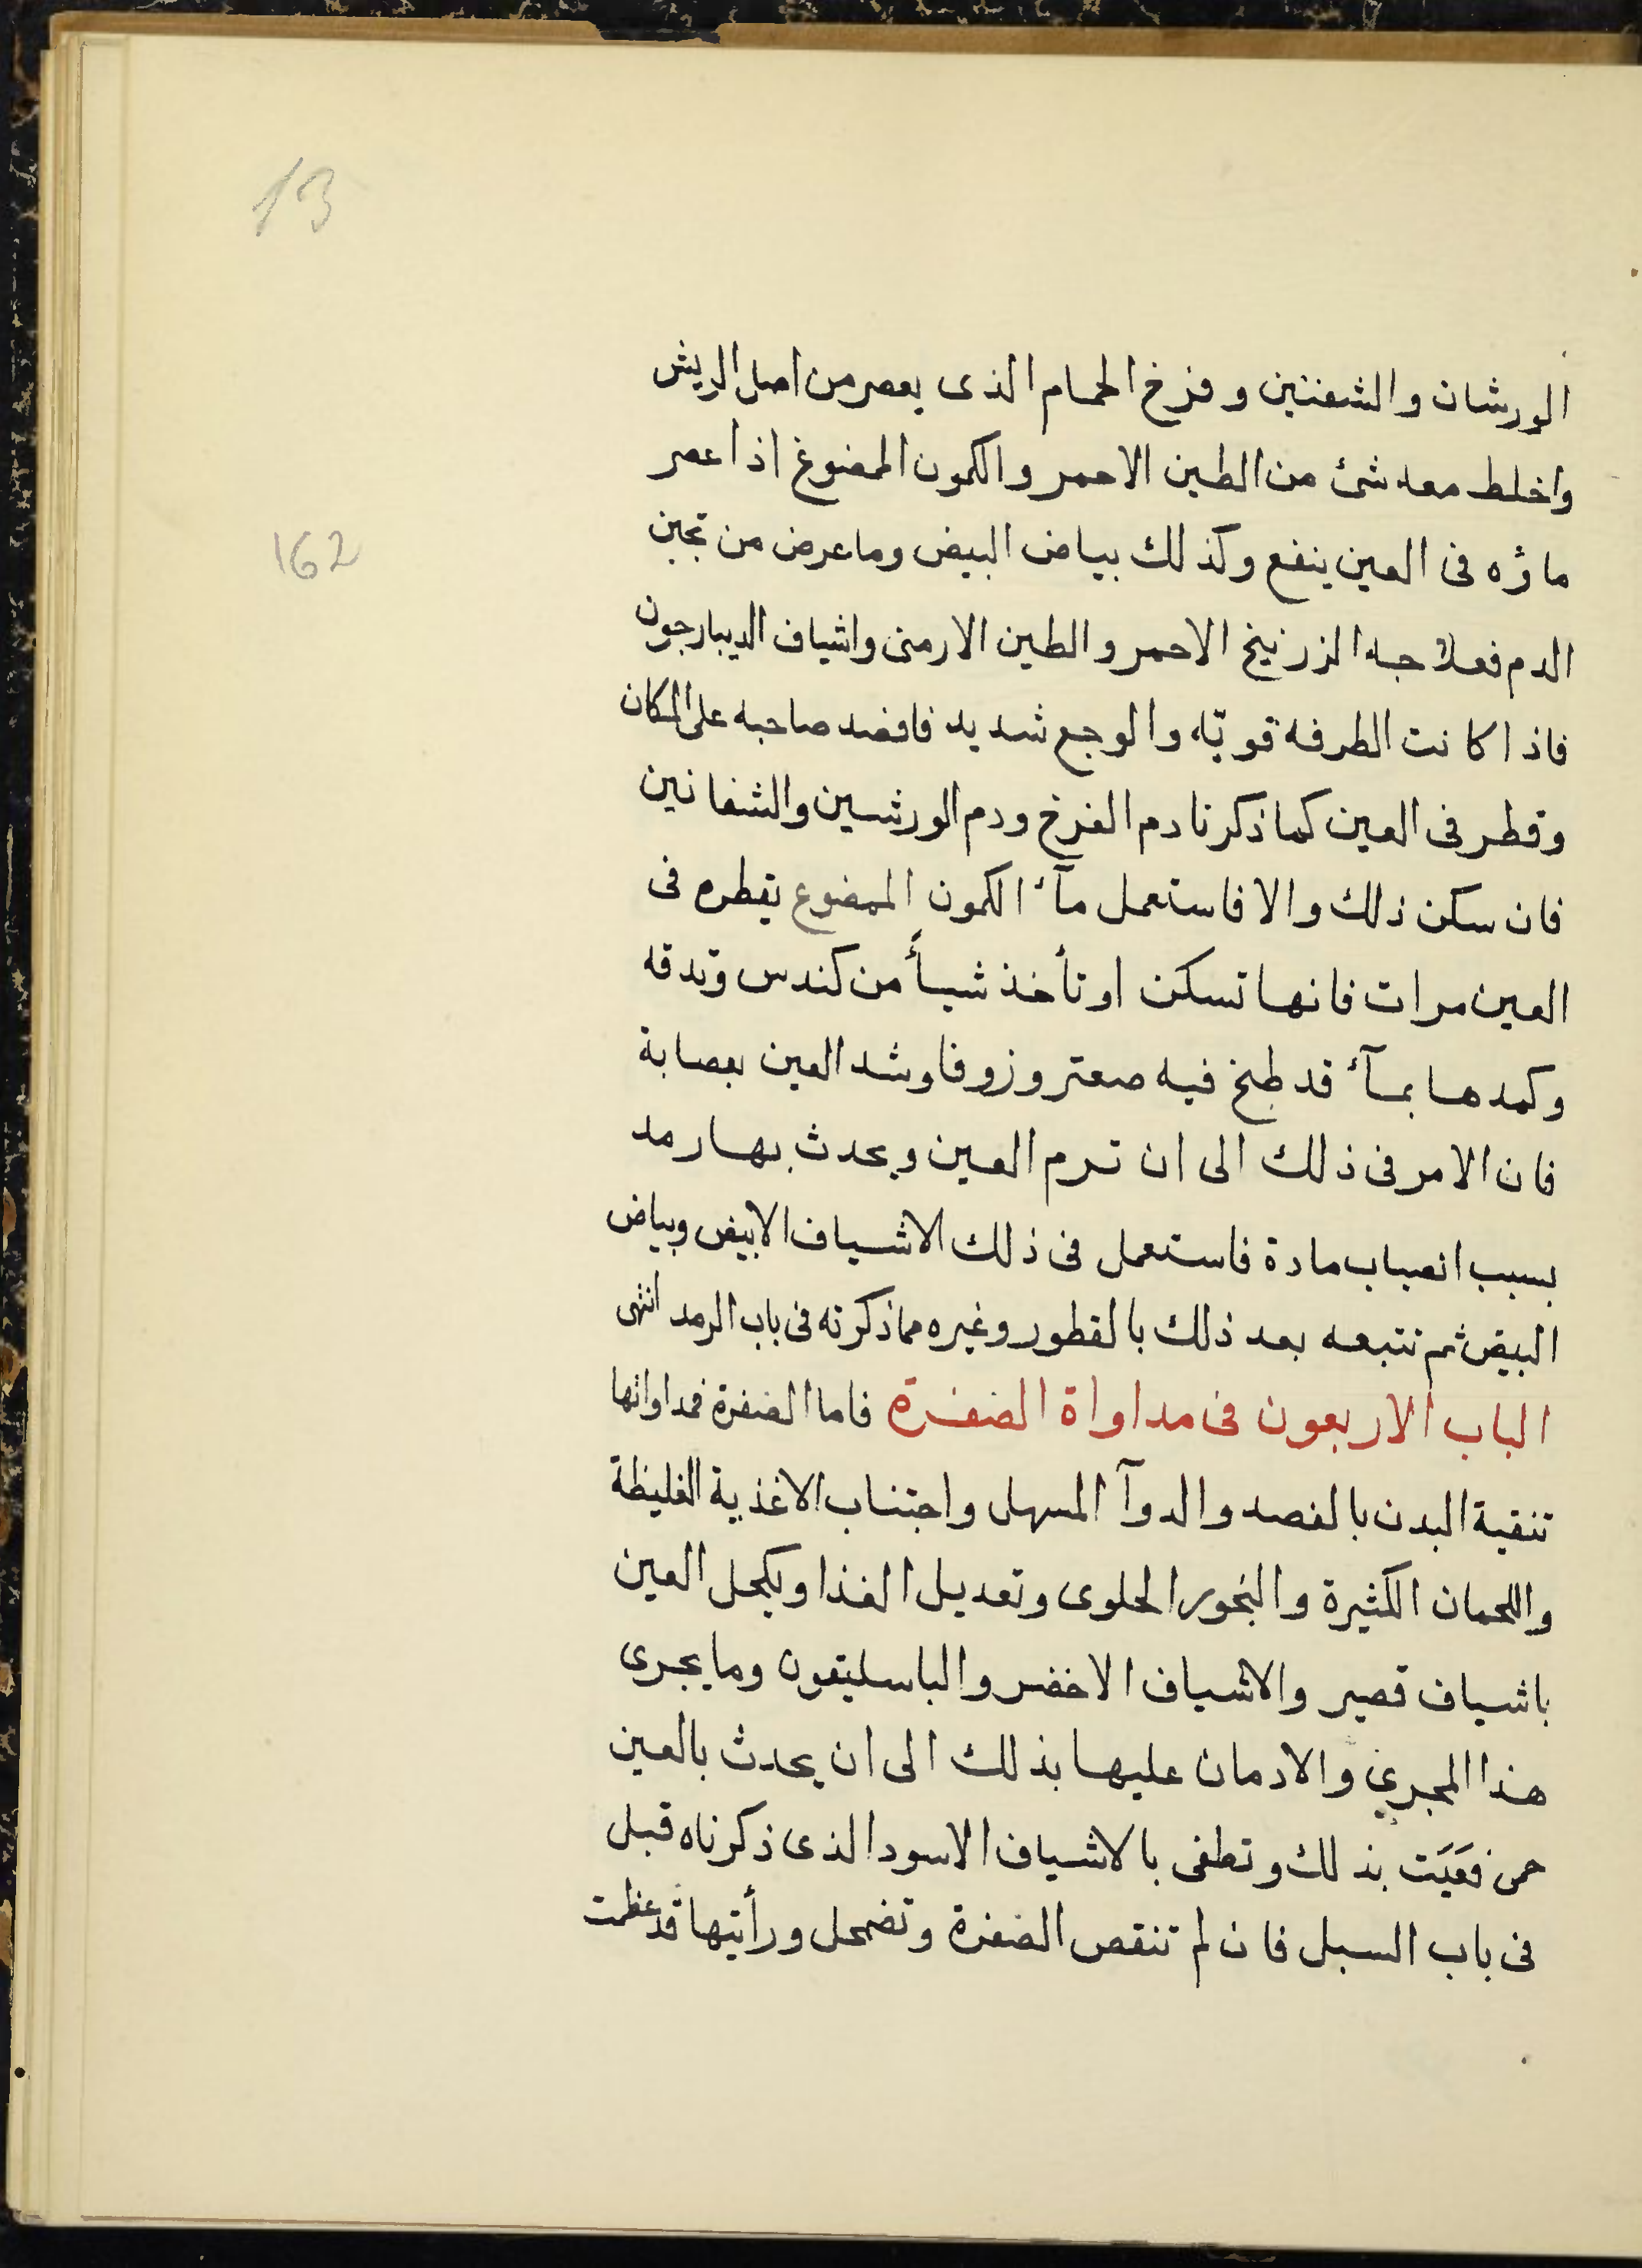 13
الورشان والشفنين وفرخ الحمام الذى يعصر من اصل الريش
واخلط معه شئ من الطين الاحمر والكمون الممضوغ اذا عصر
162
ماؤه فى العين ينفع وكذلك بياض البيض وما عرض من تجبن
الدم فعلاجه الزرنيخ الاحمر والطين الارمنى واشياف الديبارجون
فاذا كانت الطرفه قويّه والوجع شديد فافصد صاحبه على المكان
وقطر فى العين كما ذكرنا دم الفرخ ودم الورشين والشفانين
فان سكن ذلك والا فاستعمل مآء الكمون الممضوع يقطره فى
العين مرات فانها تسكن او تأخذ شيأً من كندس وتدقه
وكمدها بمآء قد طبخ فيه صعتر وزوفا وشد العين بعصابة
فان الامر فى ذلك الى ان ترم العين ويحدث بها رمد
بسبب انصباب مادة فاستعمل فى ذلك الاشياف الابيض وبياض
البيض ثم تتبعه بعد ذلك بالقطور وغيره مما ذكرته فى باب الرمد انتهى
الباب الاربعون فى مداواة الضفرة فاما الضفرة فمداواتها
تنقية البدن بالفصد والدوآ المسهل واجتناب الاغذية الغليظة
واللحمان الكثيرة والبخور الحلوى وتعديل الغذا ويكحل العين
باشياف قصير والاشياف الاخضر والباسليقون وما يجرى
هذا المجرى والادمان عليها بذلك الى ان يحدث بالعين
حمى فعَيَت بذلك وتطفى بالاشياف الاسود الذى ذكرناه قبل
فى باب السبل فان لم تنقص الضفرة وتضمحل ورأيتها قد عظمت